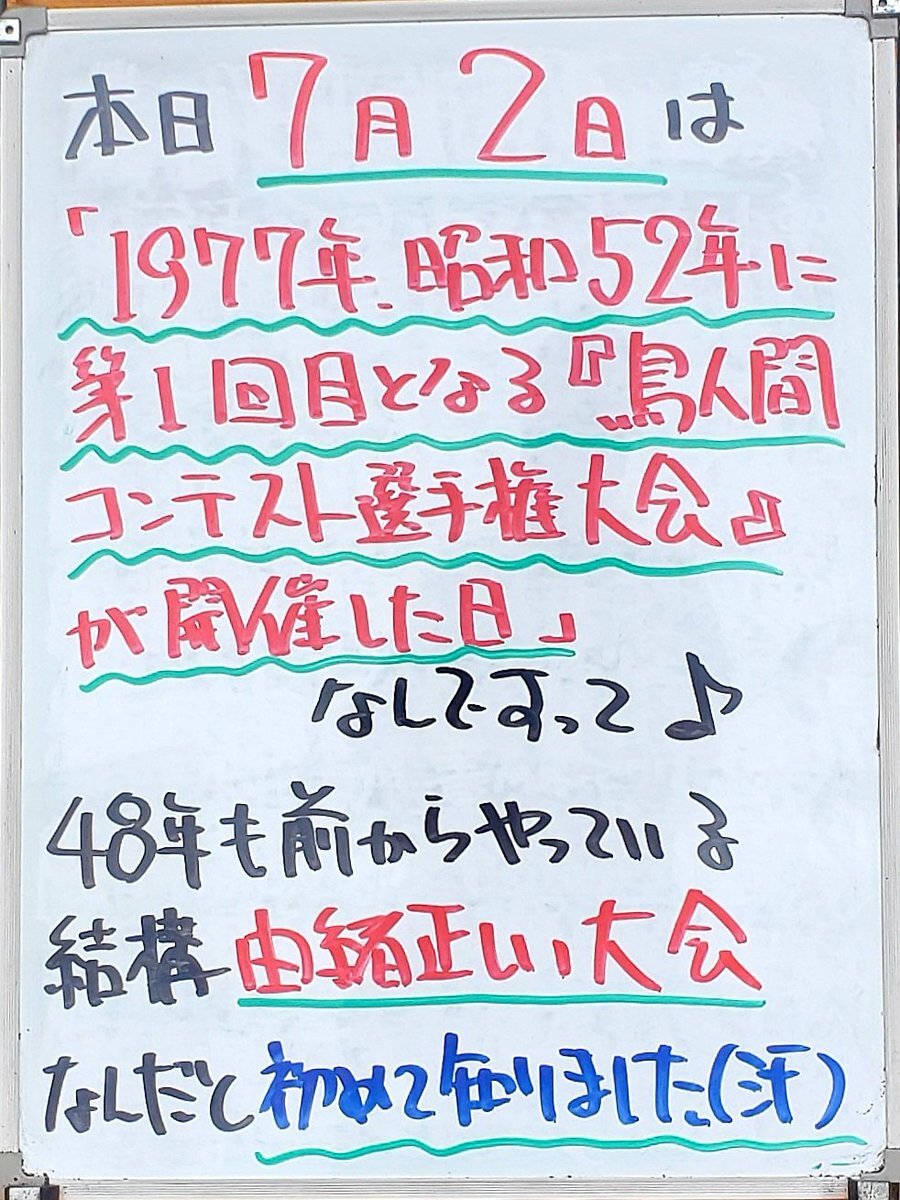 本日7月2日は
「1977年、昭和52年に
第1回目となる『鳥人間
コンテスト選手権大会』
が開催した日」
なんですって♪
48年も前からやっている
結構由緒正しい大会
なんだと初めて知りました(汗)